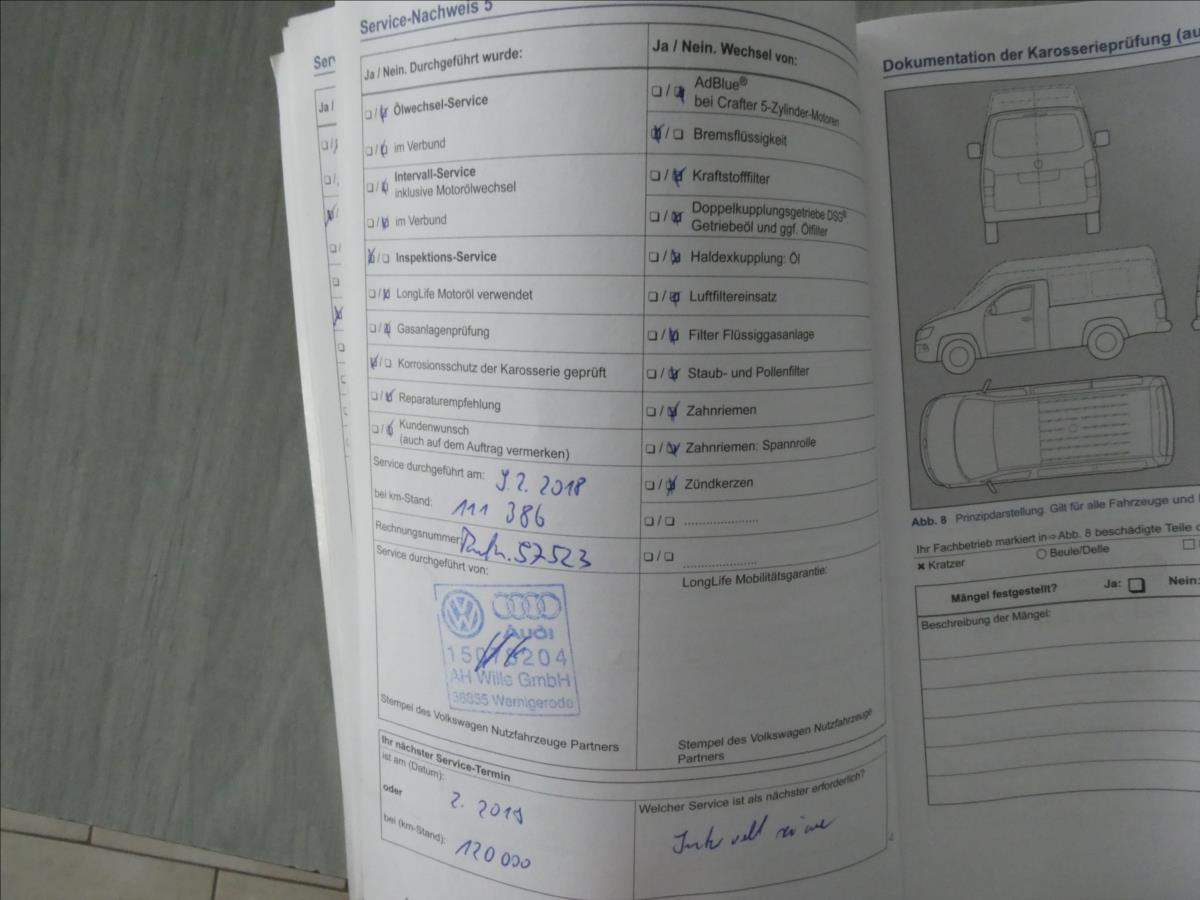 Service-Nachweis 5
Ja / Nein. Durchgeführt wurde:
❏ / ❏ Ölwechsel-Service
❏ / ❏ im Verbund
❏ / ❏ Intervall-Service
inklusive Motorölwechsel
❏ / ❏ im Verbund
❏ / ❏ Inspektions-Service
❏ / ❏ LongLife Motoröl verwendet
❏ / ❏ Gasanlagenprüfung
❏ / ❏ Korrosionsschutz der Karosserie geprüft
❏ / ❏ Reparaturempfehlung
❏ / ❏ Kundenwunsch
(auch auf dem Auftrag vermerken)
Service durchgeführt am: 9.2.2018
bei km-Stand: 111 386
Rechnungsnummer: 57523
Service durchgeführt von:
Audi
AH Wille GmbH
38855 Wernigerode
Stempel des Volkswagen Nutzfahrzeuge Partners
Ja / Nein. Wechsel von:
❏ / ❏ AdBlue®
bei Crafter 5-Zylinder-Motoren
❏ / ❏ Bremsflüssigkeit
❏ / ❏ Kraftstofffilter
❏ / ❏ Doppelkupplungsgetriebe DSG®
Getriebeöl und ggf. Ölfilter
❏ / ❏ Haldexkupplung: Öl
❏ / ❏ Luftfiltereinsatz
❏ / ❏ Filter Flüssiggasanlage
❏ / ❏ Staub- und Pollenfilter
❏ / ❏ Zahnriemen
❏ / ❏ Zahnriemen: Spannrolle
❏ / ❏ Zündkerzen
❏ / ❏ ....................
❏ / ❏ ....................
LongLife Mobilitätsgarantie:
Stempel des Volkswagen Nutzfahrzeuge
Partners
Ihr nächster Service-Termin
ist am (Datum):
oder 2. 2019
bei (km-Stand): 120 000
Welcher Service ist als nächster erforderlich?
Ser
Ja /
Dokumentation der Karosserieprüfung (au
Abb. 8 Prinzipdarstellung. Gilt für alle Fahrzeuge und
Ihr Fachbetrieb markiert in ⇒ Abb. 8 beschädigte Teile
✖ Kratzer ○ Beule/Delle ❏
Mängel festgestellt? Ja: ❏ Nein:
Beschreibung der Mängel: